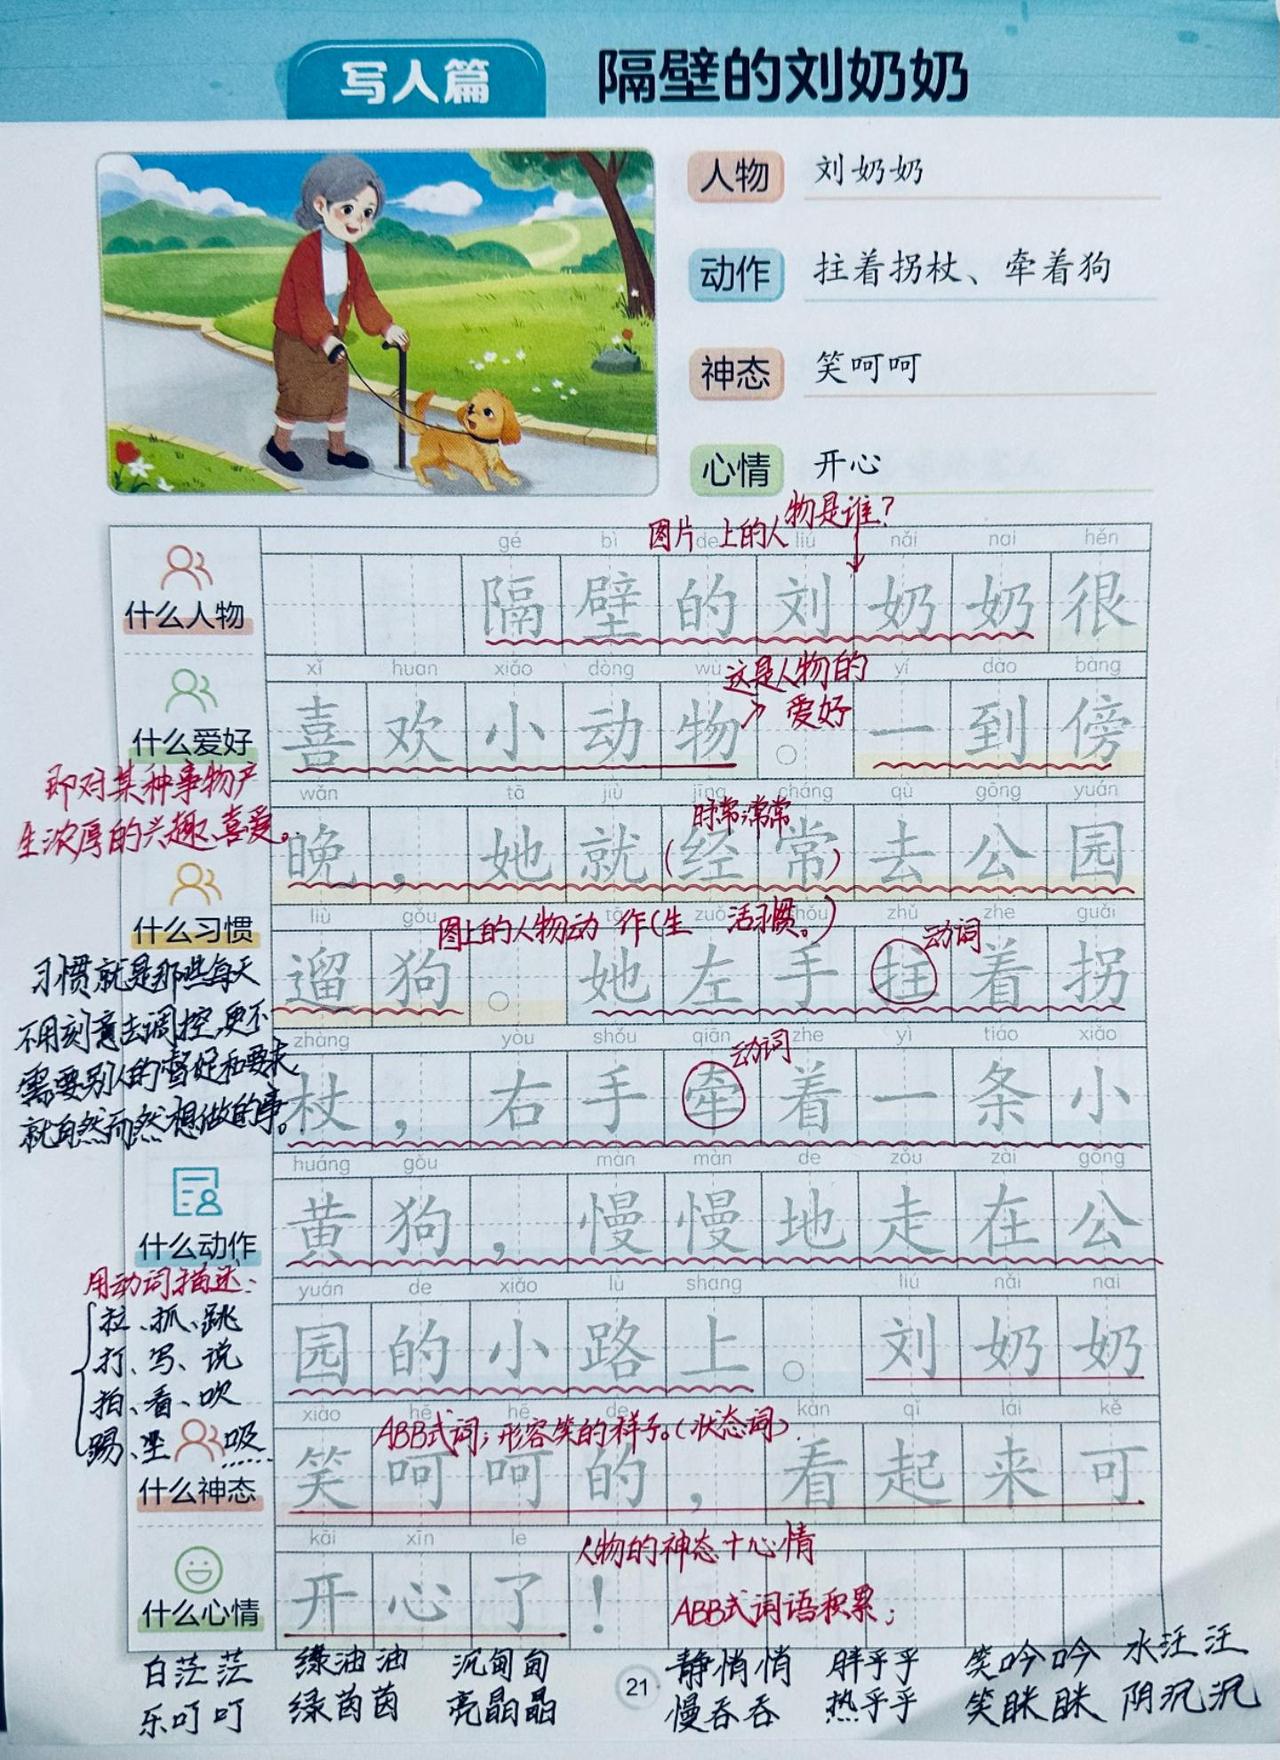 写人篇 隔壁的刘奶奶
人物 刘奶奶
动作 拄着拐杖、牵着狗
神态 笑呵呵
心情 开心
图片上的人物是谁?
gé bì de liú nǎi nai hěn
什么人物 隔壁的刘奶奶很
xǐ huan xiǎo dòng wù yí dào bàng
这是人物的
爱好
什么爱好 喜欢小动物。一到傍
即对某种事物产
生浓厚的兴趣、喜爱。
wǎn tā jiù jīng cháng qù gōng yuán
时常、常常
晚,她就(经常)去公园
什么习惯
liù gǒu tā zuǒ shǒu zhǔ zhe guǎi
图上的人物动作(生活习惯。)
动词
遛狗。她左手拄着拐
习惯就是那些每天
不用刻意去调控,更不
需要别人的督促和要求,
就自然而然想做的事。
zhàng yòu shǒu qiān zhe yì tiáo xiǎo
动词
杖,右手牵着一条小
huáng gǒu màn màn de zǒu zài gōng
什么动作 黄狗,慢慢地走在公
用动词描述:
拉、抓、跳
打、写、说
拍、看、吹
踢、坐、吸……
yuán de xiǎo lù shang liú nǎi nai
园的小路上。刘奶奶
xiào hē hē de kàn qǐ lái kě
ABB式词;形容笑的样子。(状态词)
什么神态 笑呵呵的,看起来可
kāi xīn le
人物的神态+心情
什么心情 开心了!
ABB式词语积累:
白茫茫 绿油油 沉甸甸 静悄悄 胖乎乎 笑吟吟 水汪汪
乐叮叮 绿茵茵 亮晶晶 21 慢吞吞 热乎乎 笑眯眯 阴沉沉